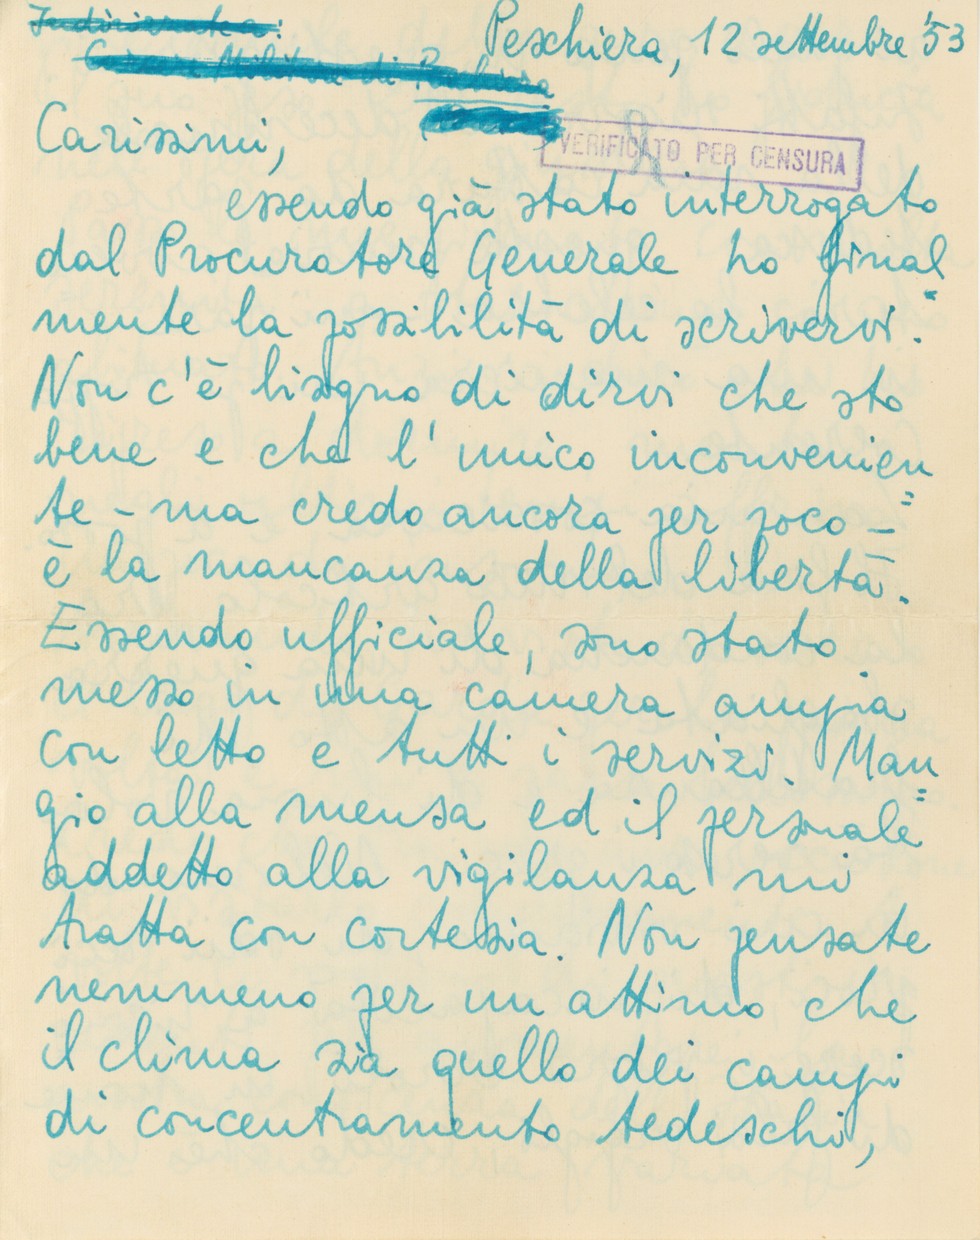 Peschiera, 12 settembre '53
Carissimi,
VERIFICATO PER CENSURA
essendo già stato interrogato
dal Procuratore Generale ho final
mente la possibilità di scrivervi.
Non c'è bisogno di dirvi che sto
bene e che l'unico inconvenien
te - ma credo ancora per poco -
è la mancanza della libertà.
Essendo ufficiale, sono stato
messo in una camera ampia
con letto e tutti i servizi. Man
gio alla mensa ed il personale
addetto alla vigilanza mi
tratta con cortesia. Non pensate
nemmeno per un attimo che
il clima sia quello dei campi
di concentramento tedeschi,